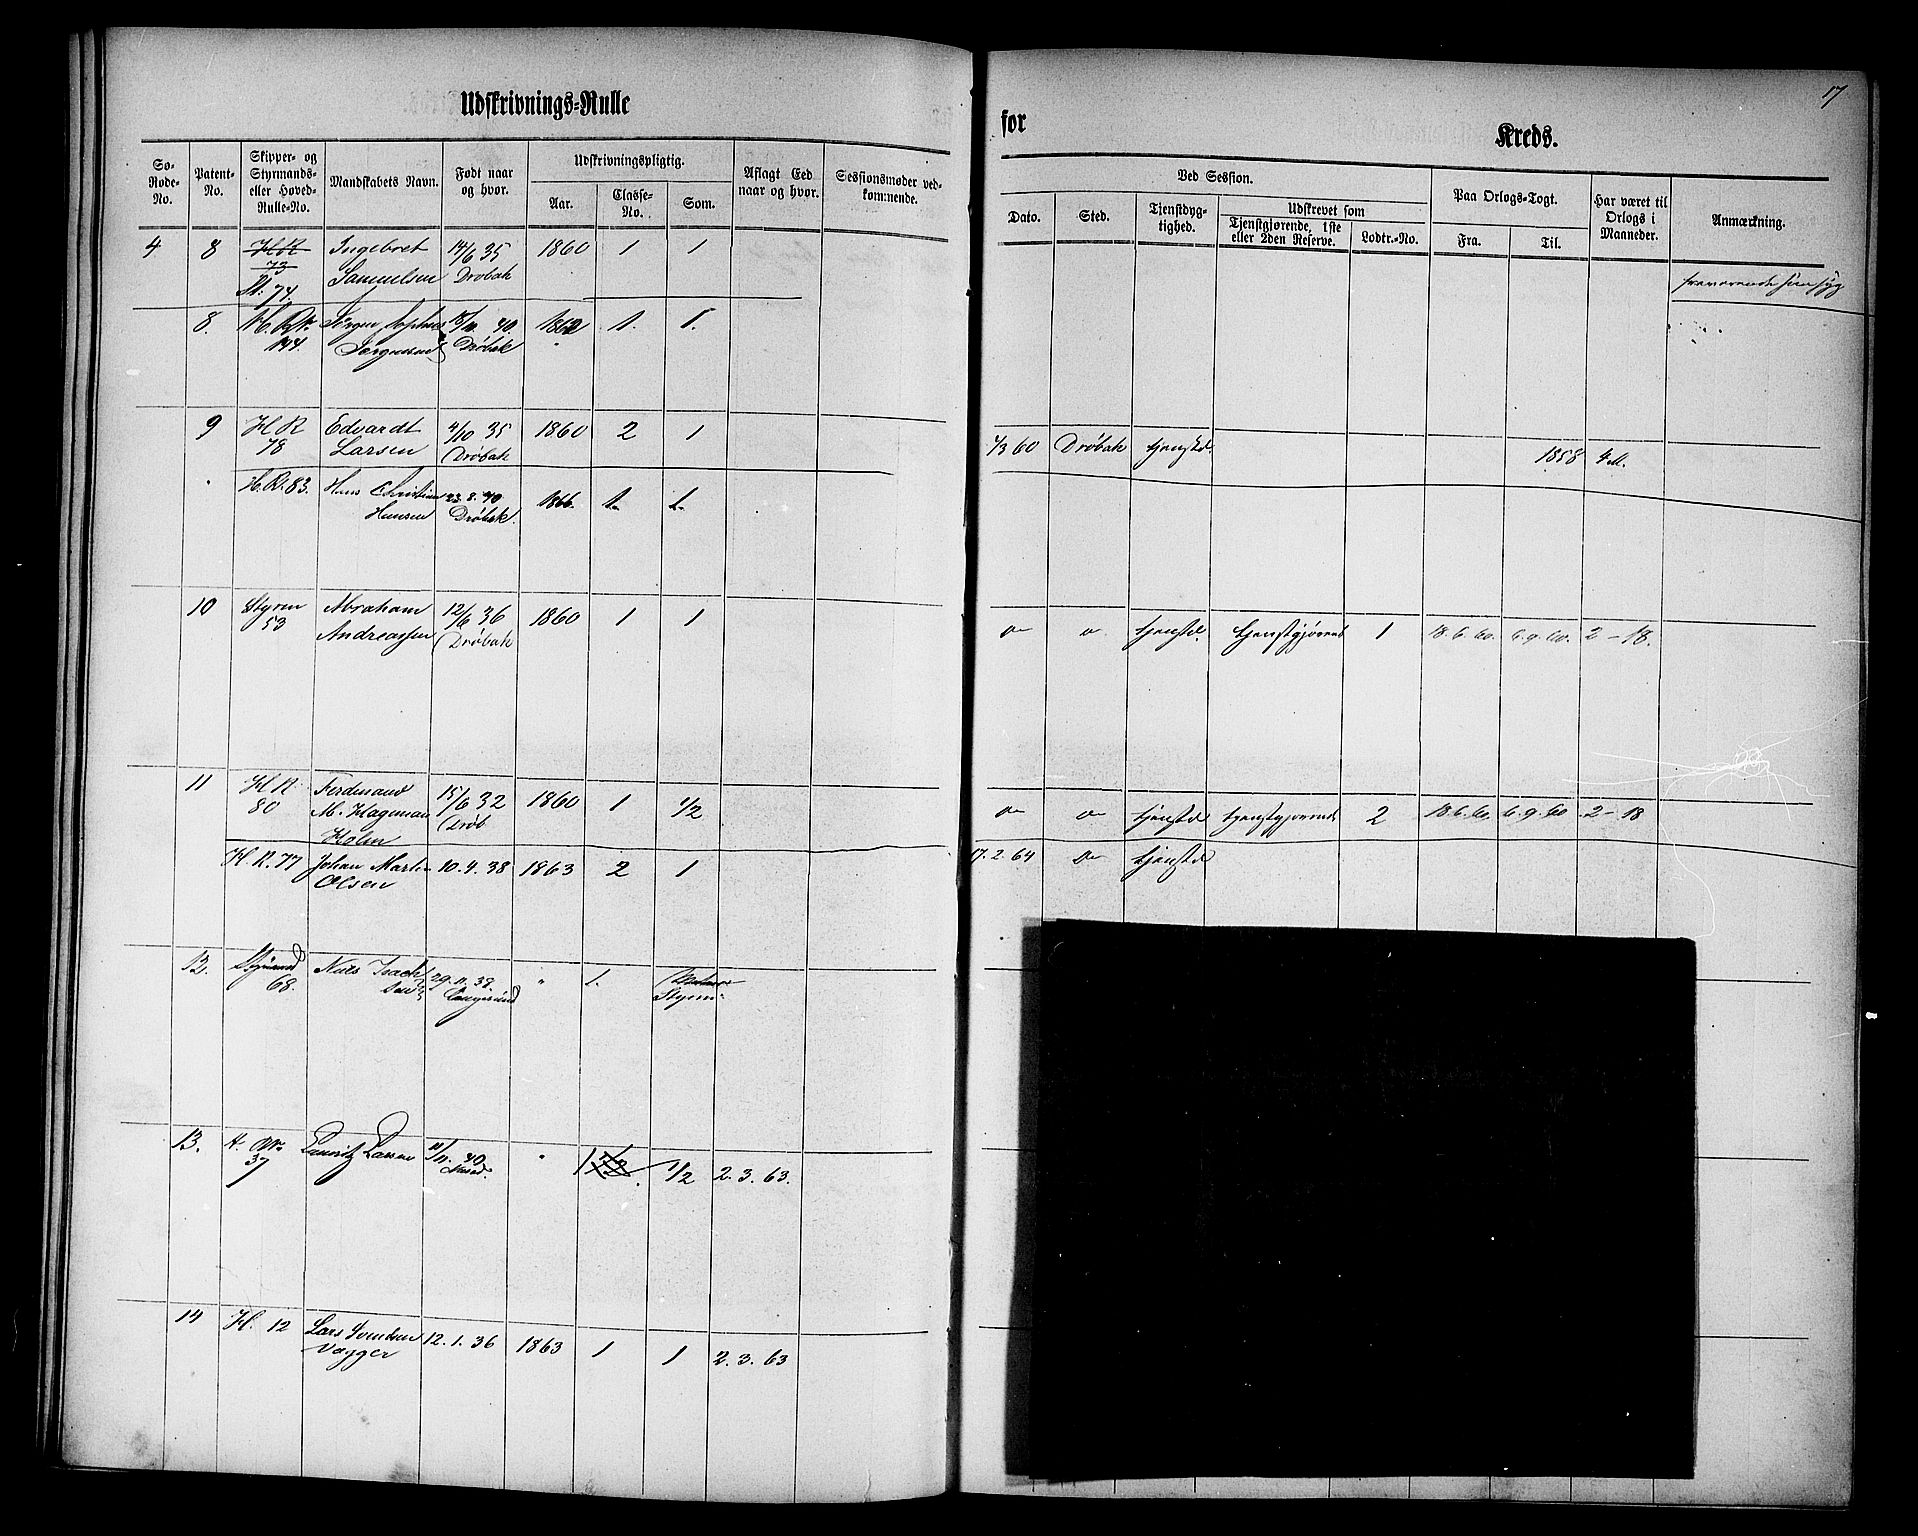 Udskrivnings-Rulle
for
Kreds.
17
Sø-Rode-No. Patent-No. Skipper- og Styrmands- eller Hoved-Rulle-No. Mandskabets Navn. Født naar og hvor. Udskrivningspligtig. Aar. Classe-No. Som. Aflagt Eed naar og hvor. Sessionsmøder vedkommende.
Ved Session. Dato. Sted. Tjenstdygtighed. Udskrevet som Tjenstgjørende, 1ste eller 2den Reserve. Lodtr.-No. Paa Orlogs-Togt. Fra. Til. Har været til Orlogs i Maaneder. Anmærkning.
4 8 H R Ingebret 14/6 35 1860 1 1
73 Samuelsen Drøbak
St. 74.
8. H. R. Jørgen 40. 1862 1. 1.
144. Jørgensen Drøbak
9 H R Edvardt 4/10 35 1860 2 1 1/3 60 Drøbak tjenstd. 1858 4 M.
78 Larsen Drøbak
H. R. 83. Hans Christian 23. 8. 40 1866. 1. 1.
Hansen Drøbak.
10 Styrm Abraham 12/6 36 1860 1 1 tjenstd. tjenstgjørend 1 18. 6. 60. 6. 9. 60. 2 - 18.
53 Andreassen Drøbak
11 H R Ferdinand 15/6 32 1860 1 1/2 tjenstd tjenstgjørende 2 18. 6. 60. 6. 9. 60 2 - 18
80 M. Hageman Drøb
Holm
H. R. 77 Johan Martin 10. 4. 38 1863 2 1 17. 2. 64 tjenstd
Olsen
12. Nils Isach 29. 11. 38. " 1.
68. sen Langesund Styrm
13. H. R. Larsen 40 " 1 1/2 2. 3. 63.
37
14 H. 12 Lars Svendsen 12. 1. 36 1863 1 1 2. 3. 63
Vagger